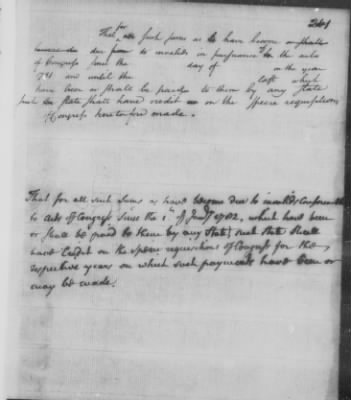 241
That for all such sums as to have become or shall
become due to invalids in pursuance to the acts
of Congress since the day of in the year
1781 and until the last which
have been or shall be paid to them by any State
such State shall have credit on the specie requisitions
of Congress heretofore made.
That for all such Sums as have become due to invalids conformable
to Acts of Congress Since the 1st of Jany 1782, which have been
or shall be paid to them by any State; such State shall
have Credit on the specie requisitions of Congress for the
respective years on which such payments have been or
may be made.